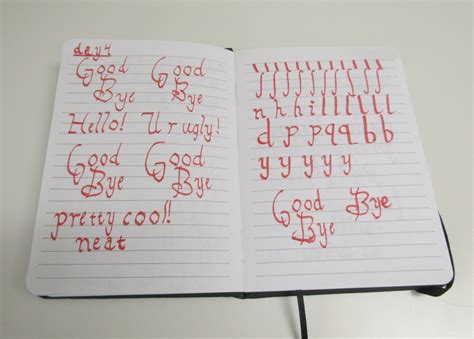 day 4
Good Good
Bye Bye
Hello! U r ugly!
Good Good
Bye Bye
pretty cool!
neat
ı ı ı ı ı ı ı ı ı ı
ʃ ʃ ʃ ʃ ʃ ʃ ʃ ʃ ʃ ʃ
n h h i l l l l l l
d p p q q b b
y y y y y
Good Bye
Bye